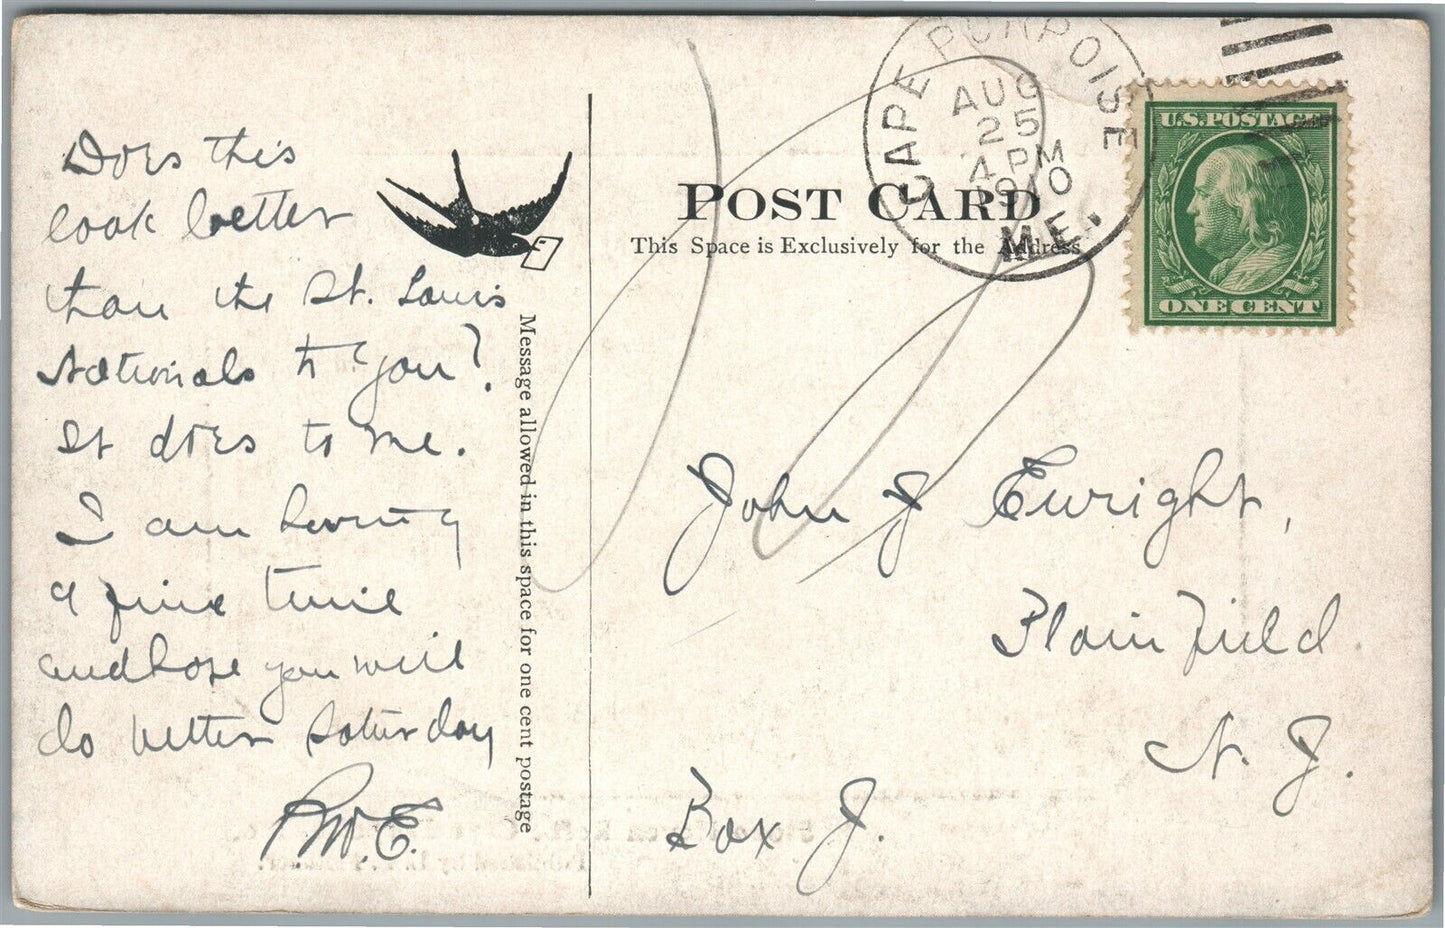 Does this
look better
than the St. Louis
Nationals to you?
It does to me.
I am having
a fine time
and hope you will
do better Saturday
R.W.E.
Message allowed in this space for one cent postage
POST CARD
This Space is Exclusively for the Address
CAPE PORPOISE
AUG
25
4 PM
1910
ME.
U.S. POSTAGE
ONE CENT
John J Enright,
Plainfield
N. J.
Box J.